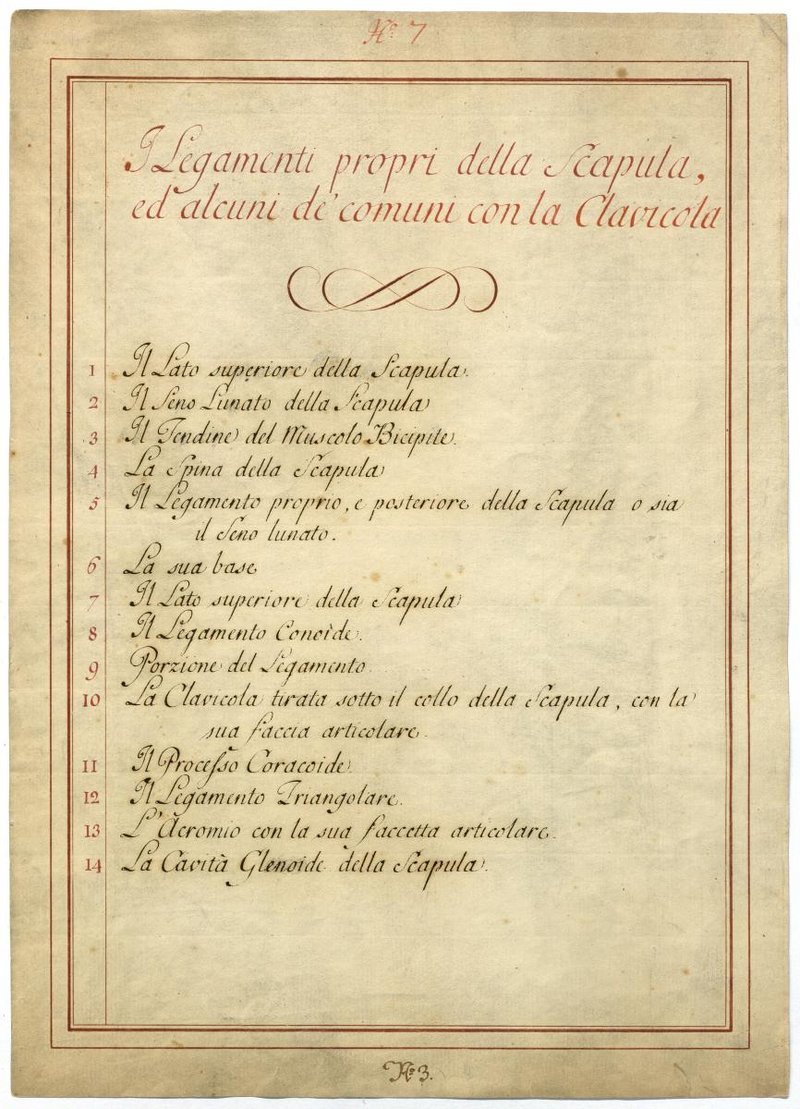 No. 7
I Legamenti propri della Scapula,
ed alcuni de' comuni con la Clavicola
1 Il Lato superiore della Scapula.
2 Il Seno Lunato della Scapula
3 Il Tendine del Muscolo Bicipite.
4 La Spina della Scapula
5 Il Legamento proprio, e posteriore della Scapula o sia
il Seno lunato.
6 La sua base
7 Il Lato superiore della Scapula
8 Il Legamento Conoide.
9 Porzione del Legamento
10 La Clavicola tirata sotto il collo della Scapula, con la
sua faccia articolare.
11 Il Processo Coracoide.
12 Il Legamento Triangolare.
13 L'Acromio con la sua faccetta articolare.
14 La Cavità Glenoide della Scapula.
No. 3.